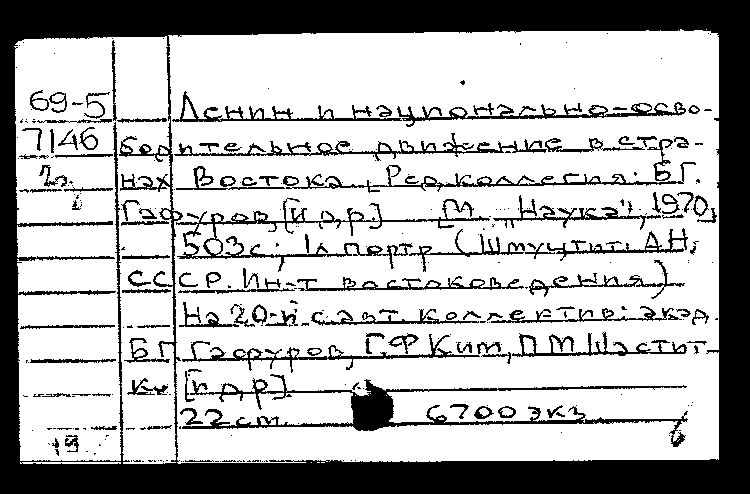 69-5 Ленин и национально-осво-
7146 бодительное движение в стра-
2а нах Востока. [Ред. коллегия: Б.Г.
Гафуров, [и др.] [М. „Наука", 1970,
503 с.; 1 л портр (Шмуцтит: АН.
СССР. Ин-т востоковедения)
На 20-й с авт. коллектив: акад.
БГ Гафуров, Г.Ф Ким, П М Шастит
ко [и др]
22 см. 6700 экз